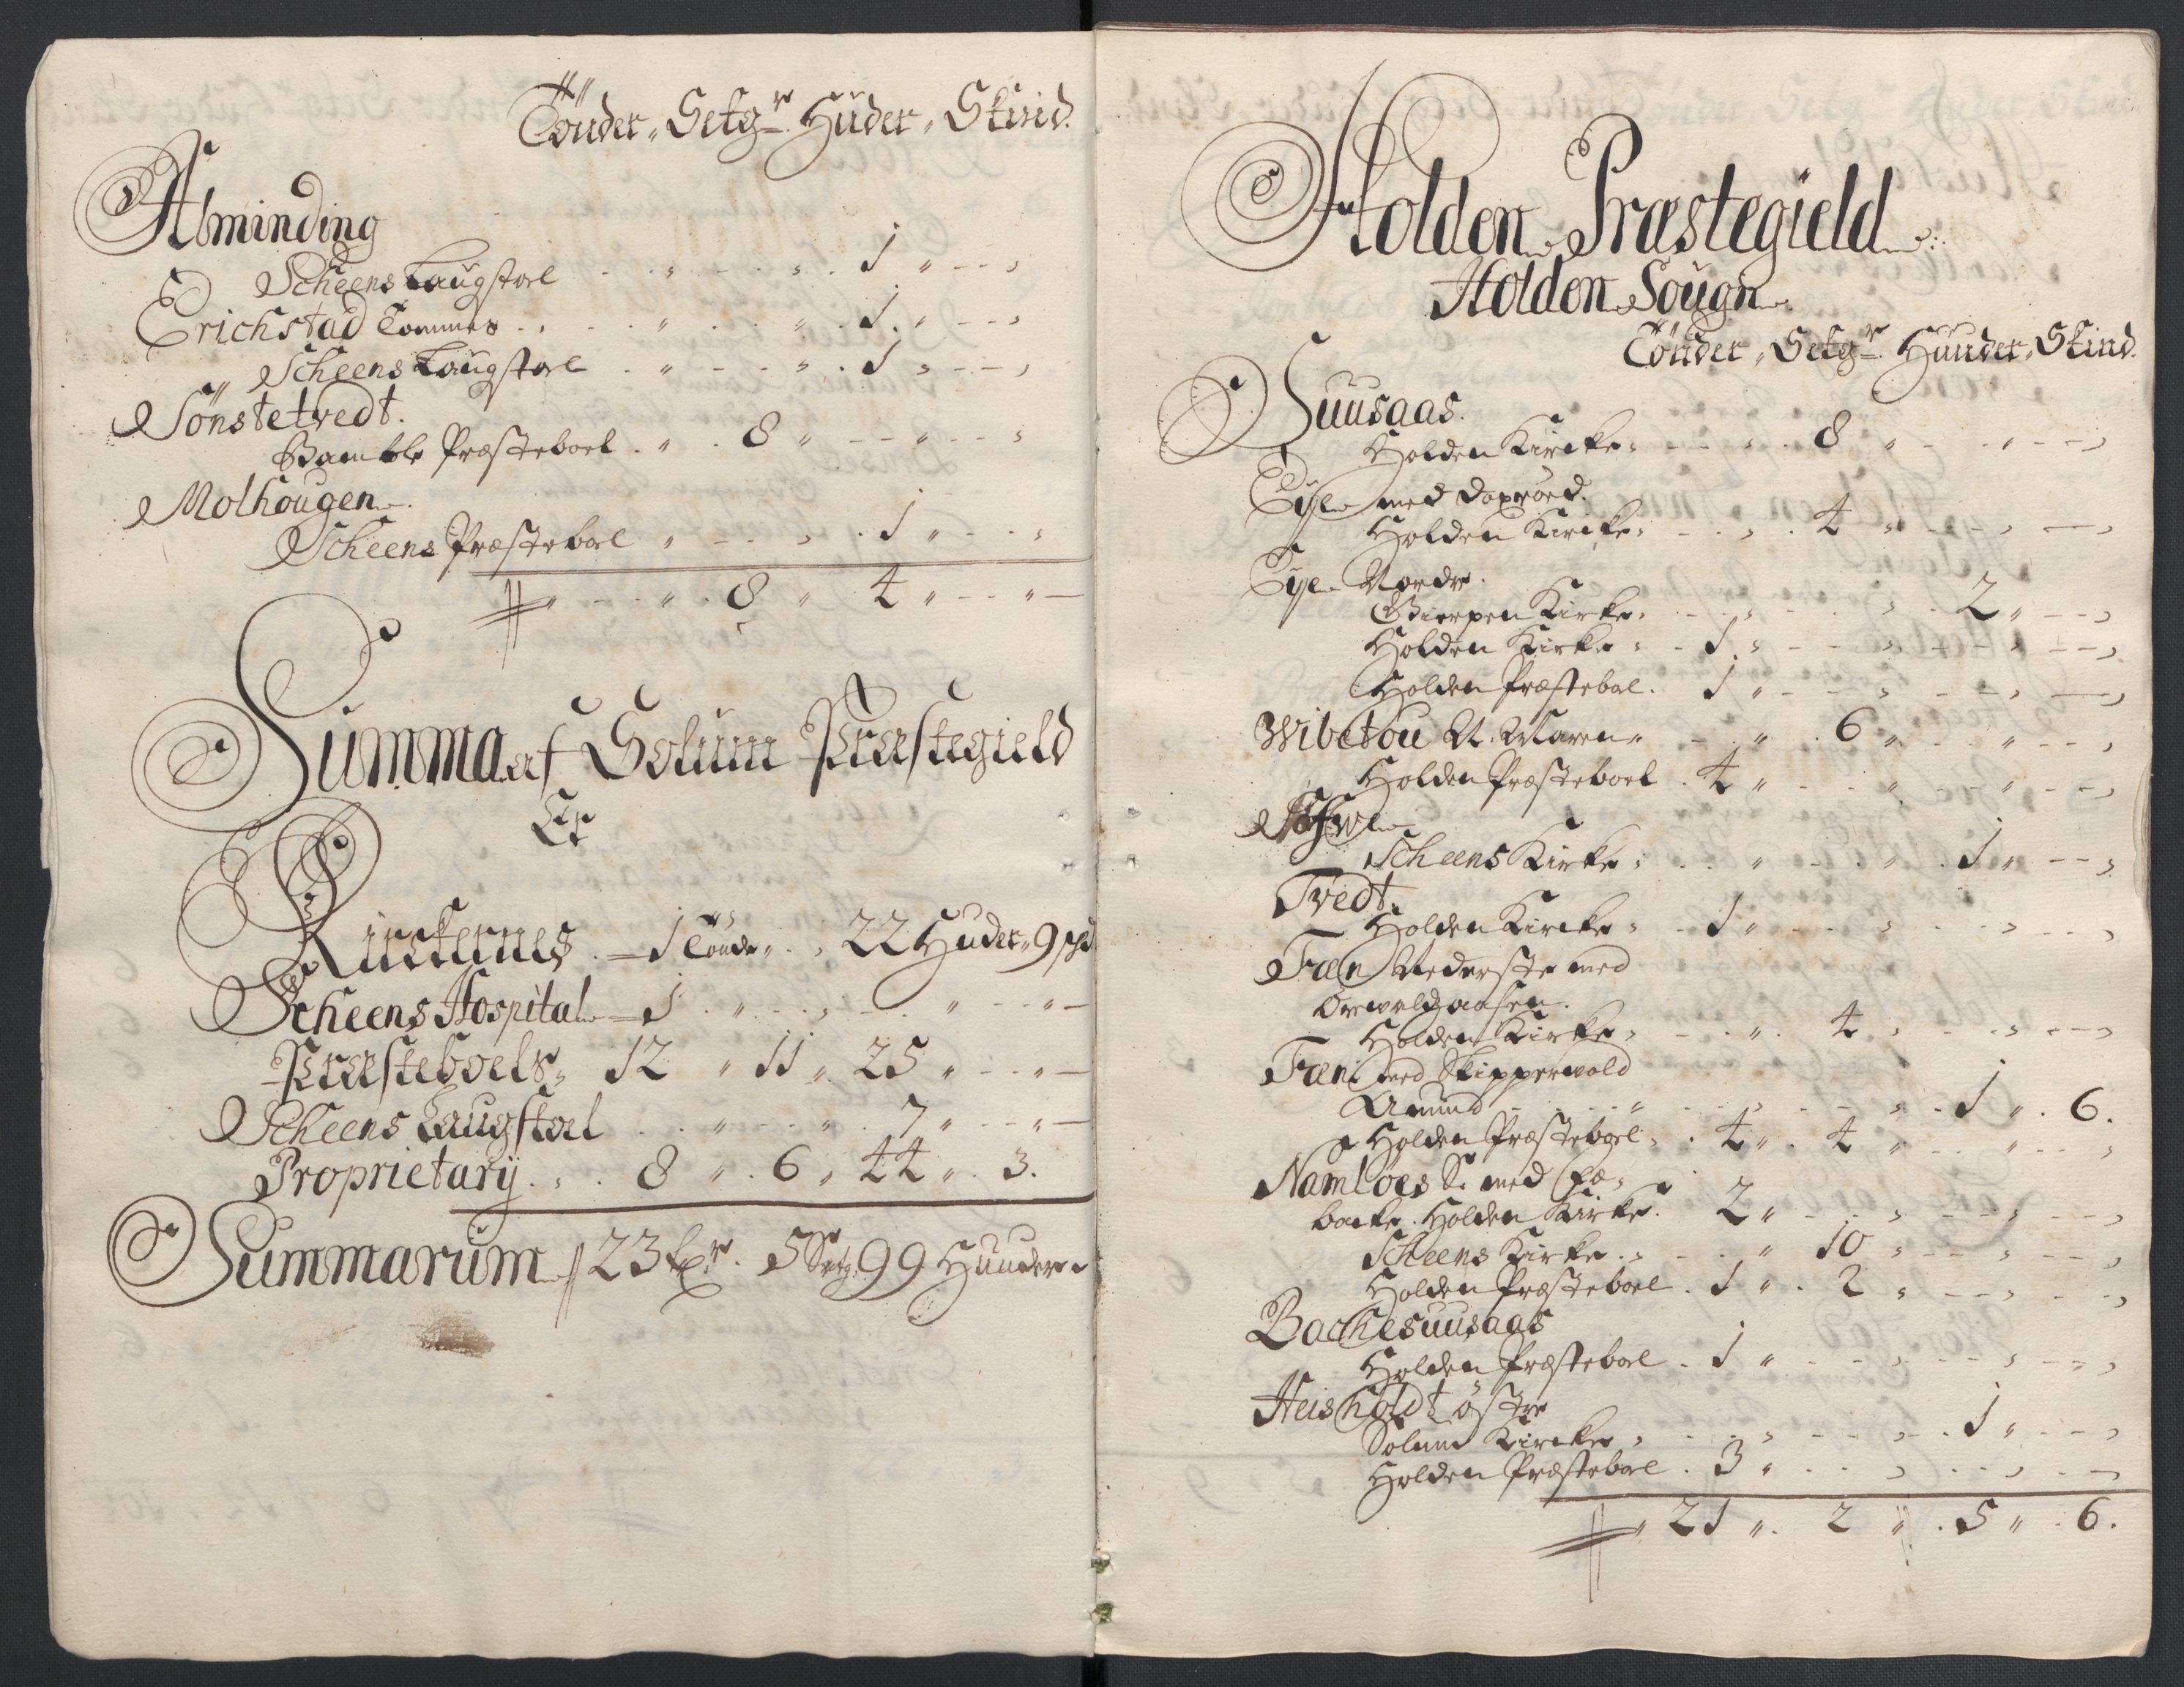 Tönder „ Setg.r Hüder „ Skind.
Alminding
Scheens Laugstoel . . „ - . . „ . 1 „ - - „
Erichstad Tommes . . - . . „ . . „ . 1 . „ - - „
Scheens Laugstoel . „ - . „ . 1 „ - - „
Tönstetvedt.
Bamble Præsteboel . „ . 8 „ - - „ - - „
Molhougen
Scheens Præsteboel „ - . „ . 1 „ - . . „
„ - . . „ . 8 „ 4 „ - - „ -
Summa af Solum Præstegield
Er
Kirckernes . - 1 Tönde „ . „ 22 Huder „ 9 schd
Scheens Hospital - 1 . „ . . „ - . „ - - „ -
Præsteboels „ 12 „ 11 „ 25 „ - . „ -
Scheens Laugstoel . . „ - . „ . 7 „ - . „ -
Proprietary . „ . 8 „ . 6 „ 44 „ . 3.
Summarum 23 tr. 5 Setg. 99 Huuder
Holden Præstegield
Holden Sougn
Tönder „ Setg.r Huuder „ Skind.
Suusaas.
Holden Kircke „ - - „ . 8 „ - . „ - - „
Eye med
Holden Kircke „ - . „ . 4 „ - - „ - „
Eye Nordre.
Gierpen Kirke „ - . „ - . . „ . 2 „ - - „
Holden Kirke „ - 1 . „ - - „ - - „ - - „
Holden Præsteboel . 1 „ - - „ - - „ - „
Wibetou N. Maren „ - . „ . 6 „ . . „ - - „
Holden Præsteboel . 4 „ . - „ . - „ - - „
Scheens Kirke „ . . „ - . „ . 1 „ - - „
Tvedt.
Holden Kircke „ - 1 „ . - „ . . „ - - „
Fæn Nederste med
Holden Kirke „ - . „ . 4 „ . - „ - - „
Fæn med Skipperwold
Amund - . . „ . - „ - . „ . 1 „ . 6.
Holden Præsteboel „ . 4 „ . 4 „ . . „ . . „
Namløes S. med Fæ-
backe. Holden Kirke. 2 „ - . „ - - „ - - „
Scheens Kirke . „ - . „ 10 „ - - „ - - „
Holden Præsteboel . 1 „ . 2 „ - - „ - - „
Bachesuusaas
Holden Præsteboel . 1 „ - . „ - - „ - - „
Heisholdt østre
Solum Kircke „ . - „ - - „ . 1 „ - - „
Holden Præsteboel . 3 „ . . „ . . „ . - „
„ 21 „ . 2 „ . 5 „ . 6.